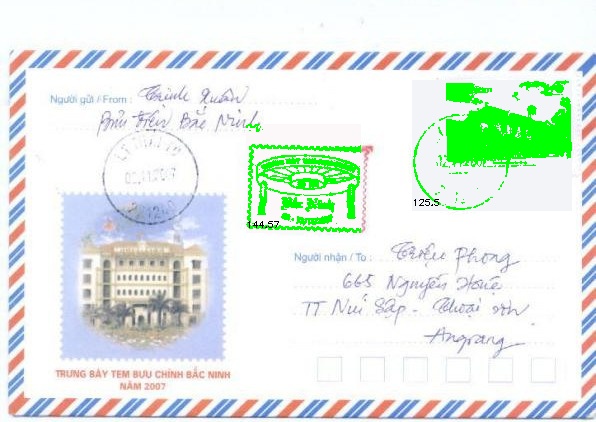 Người gửi / From : Trịnh Xuân
Bưu điện Bắc Ninh
Bắc Ninh
144.57
125.5
Người nhận / To : Triệu Phong
665 Nguyễn Huệ
TT Núi Sập - Thoại Sơn
Angiang
TRƯNG BÀY TEM BƯU CHÍNH BẮC NINH
NĂM 2007